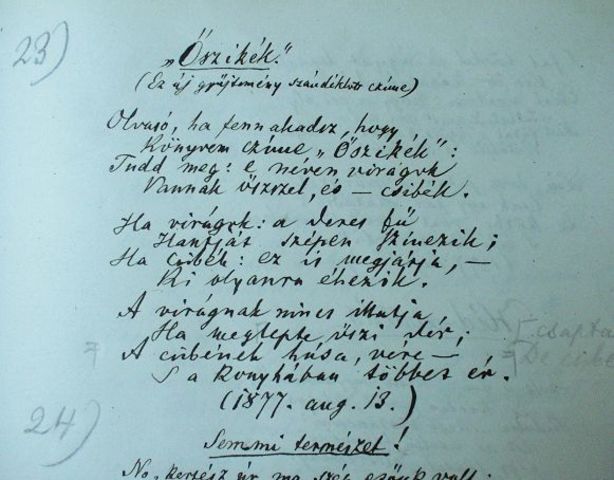 23)
„Őszikék."
(Ez új gyűjtemény szándéklott czíme)
Olvasó, ha fennakadsz, hogy
Könyvem czíme „Őszikék":
Tudd meg: e néven virágok
Vannak őszszel, és – csibék.
Ha virágok: a deres fű
Hantját szépen színezik;
Ha csibék: ez is megjárja, –
Ki olyanra éhezik.
A virágnak nincs illatja,
Ha meglepte őszi dér;
A csibének húsa, vére –
S a konyhában többet ér.
(1877. aug. 13.)
24)
Semmi természet!
No, kertész úr ma szép